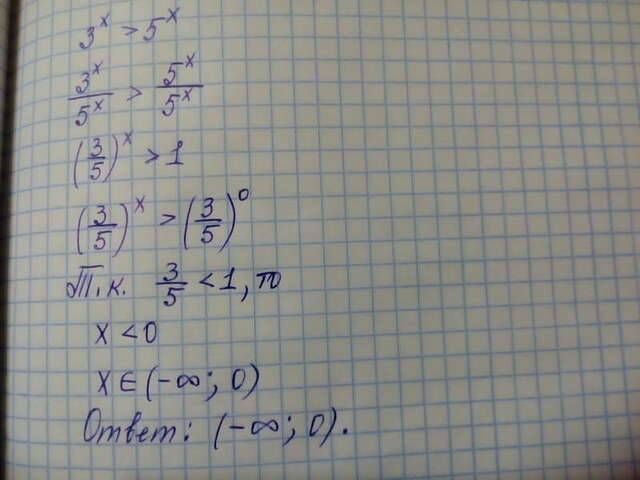 3^x > 5^x
3^x/5^x > 5^x/5^x
(3/5)^x > 1
(3/5)^x > (3/5)^0
Т.к. 3/5 < 1, то
x < 0
x ∈ (-∞; 0)
Ответ: (-∞; 0).